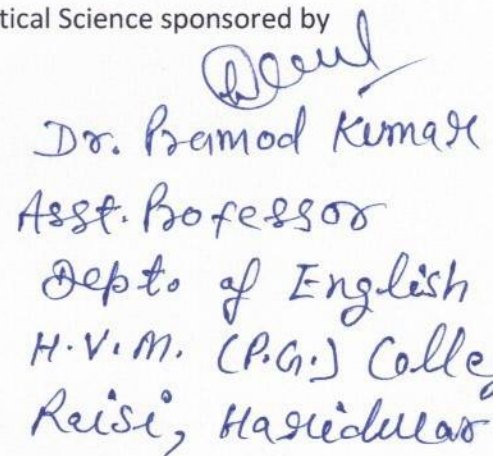 tical Science sponsored by
Dr. Pramod Kumar
Asst. Professor
Deptt. of English
H.V.M. (P.G.) Colleg
Raisi, Haridwar